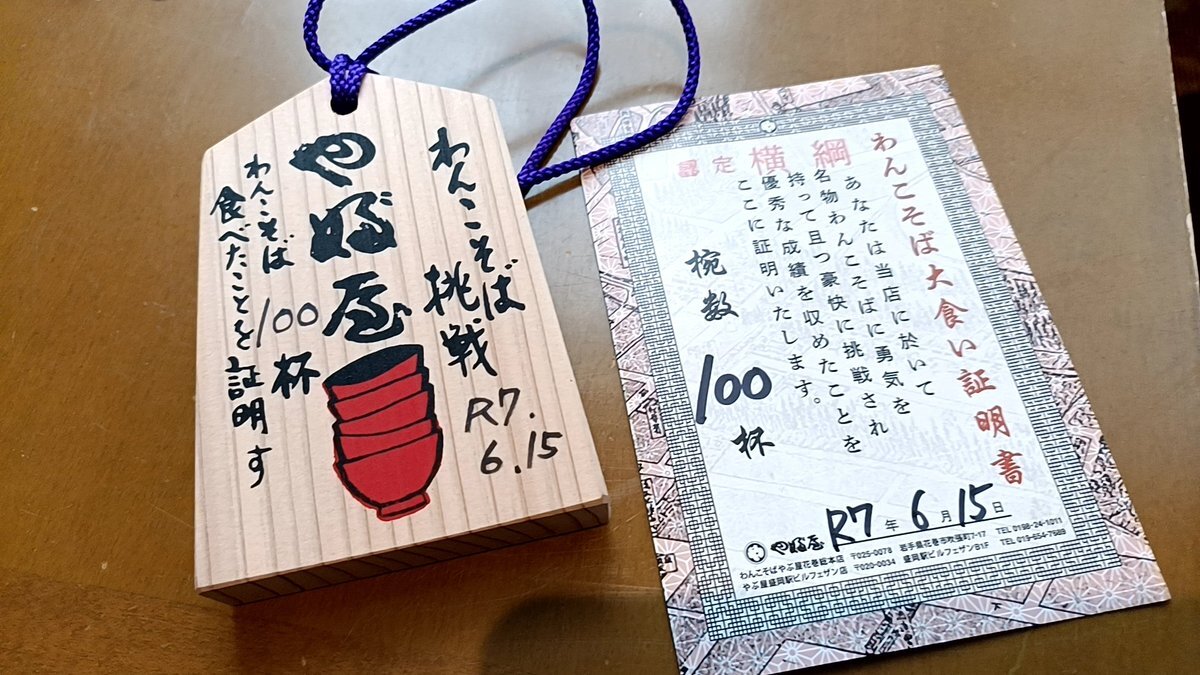 わんこそば
挑戦
R7.
6.15
やぶ屋
わんこそば
100杯
食べたことを証明す
わんこそば大食い証明書
認定 横綱
あなたは当店に於いて
名物わんこそばに勇気を
持って且つ豪快に挑戦され
優秀な成績を収めたことを
ここに証明いたします。
椀数 100 杯
R7年6月15日
やぶ屋
わんこそばやぶ屋花巻総本店 〒025-0078 岩手県花巻市吹張町7-17 TEL 0198-24-1011
やぶ屋盛岡駅ビルフェザン店 〒020-0034 盛岡駅ビルフェザンB1F TEL 019-654-7689